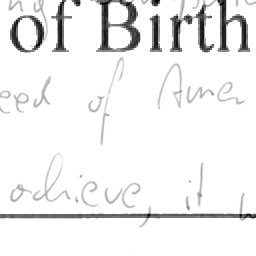 of Birth
eed of Amer
achieve, it w